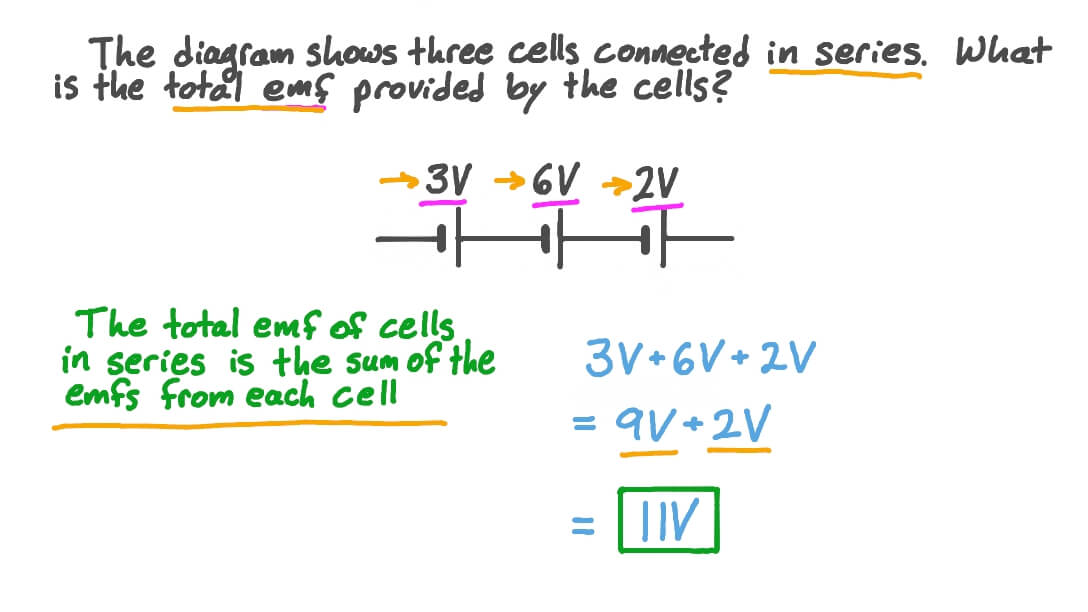 The diagram shows three cells connected in series. What
is the total emf provided by the cells?
→3V →6V →2V
The total emf of cells
in series is the sum of the
emfs from each cell
3V+6V+2V
= 9V+2V
= 11V